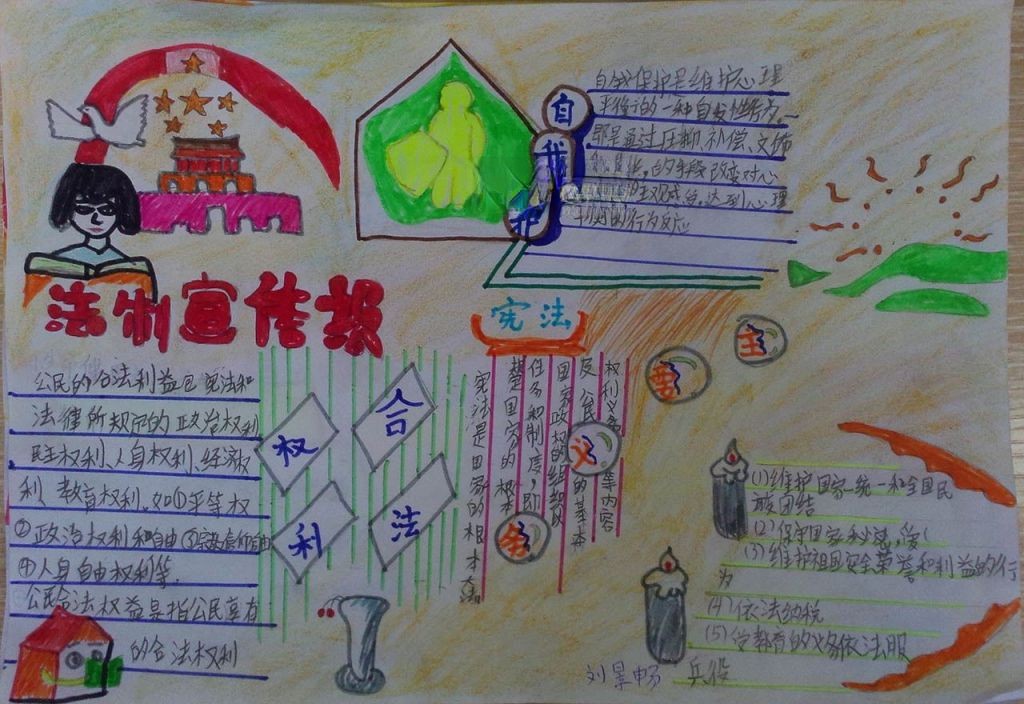 法制宣传报
公民的合法利益包宪法和
法律所规定的政治权利
民主权利、人身权利、经济权
利、教育权利.如①平等权
②政治权利和自由③宗教信仰自由
④人身自由权利等.
公民合法权益是指公民享有
的合法权利
合
权
法
利
自我
护
自我保护是维护心理
的一种自发性
即是通过压抑、补偿、文饰
的手段改变对心
达到心理
的行为反应
宪法
宪法是国家的根本大法
国家的根本
任务和制度,即
国家政权的组织以
及公民的基本
权利义务等内容
主
要
义
务
(1)维护国家统一和全国民
族团结
(2)保守国家秘密,爱
(3)维护祖国安全荣誉和利益的行
为
(4)依法纳税
(5)受教育的义务依法服
兵役
刘景畅